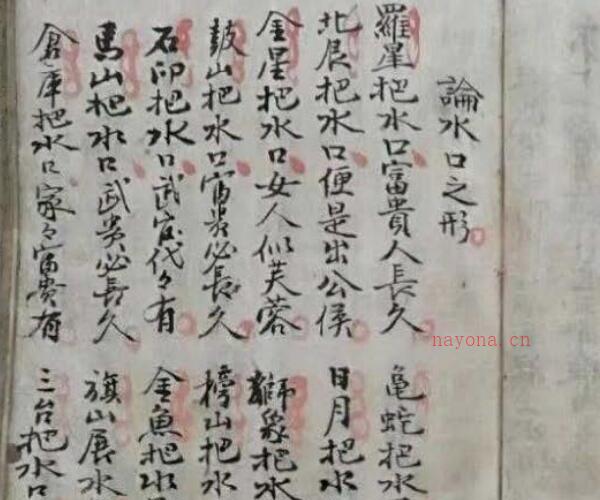 論水口之形
羅星把水口富貴人長久
龜蛇把水
北辰把水口便是出公侯
日月把水
金星把水口女人似芙蓉
獅象把水
鼓山把水口富貴必長久
榜山把水
石印把水口武官代々有
金魚把水
馬山把水口武貴必長久
旗山展水
倉庫把水口家々富貴有
三台把水口
nayona.cn